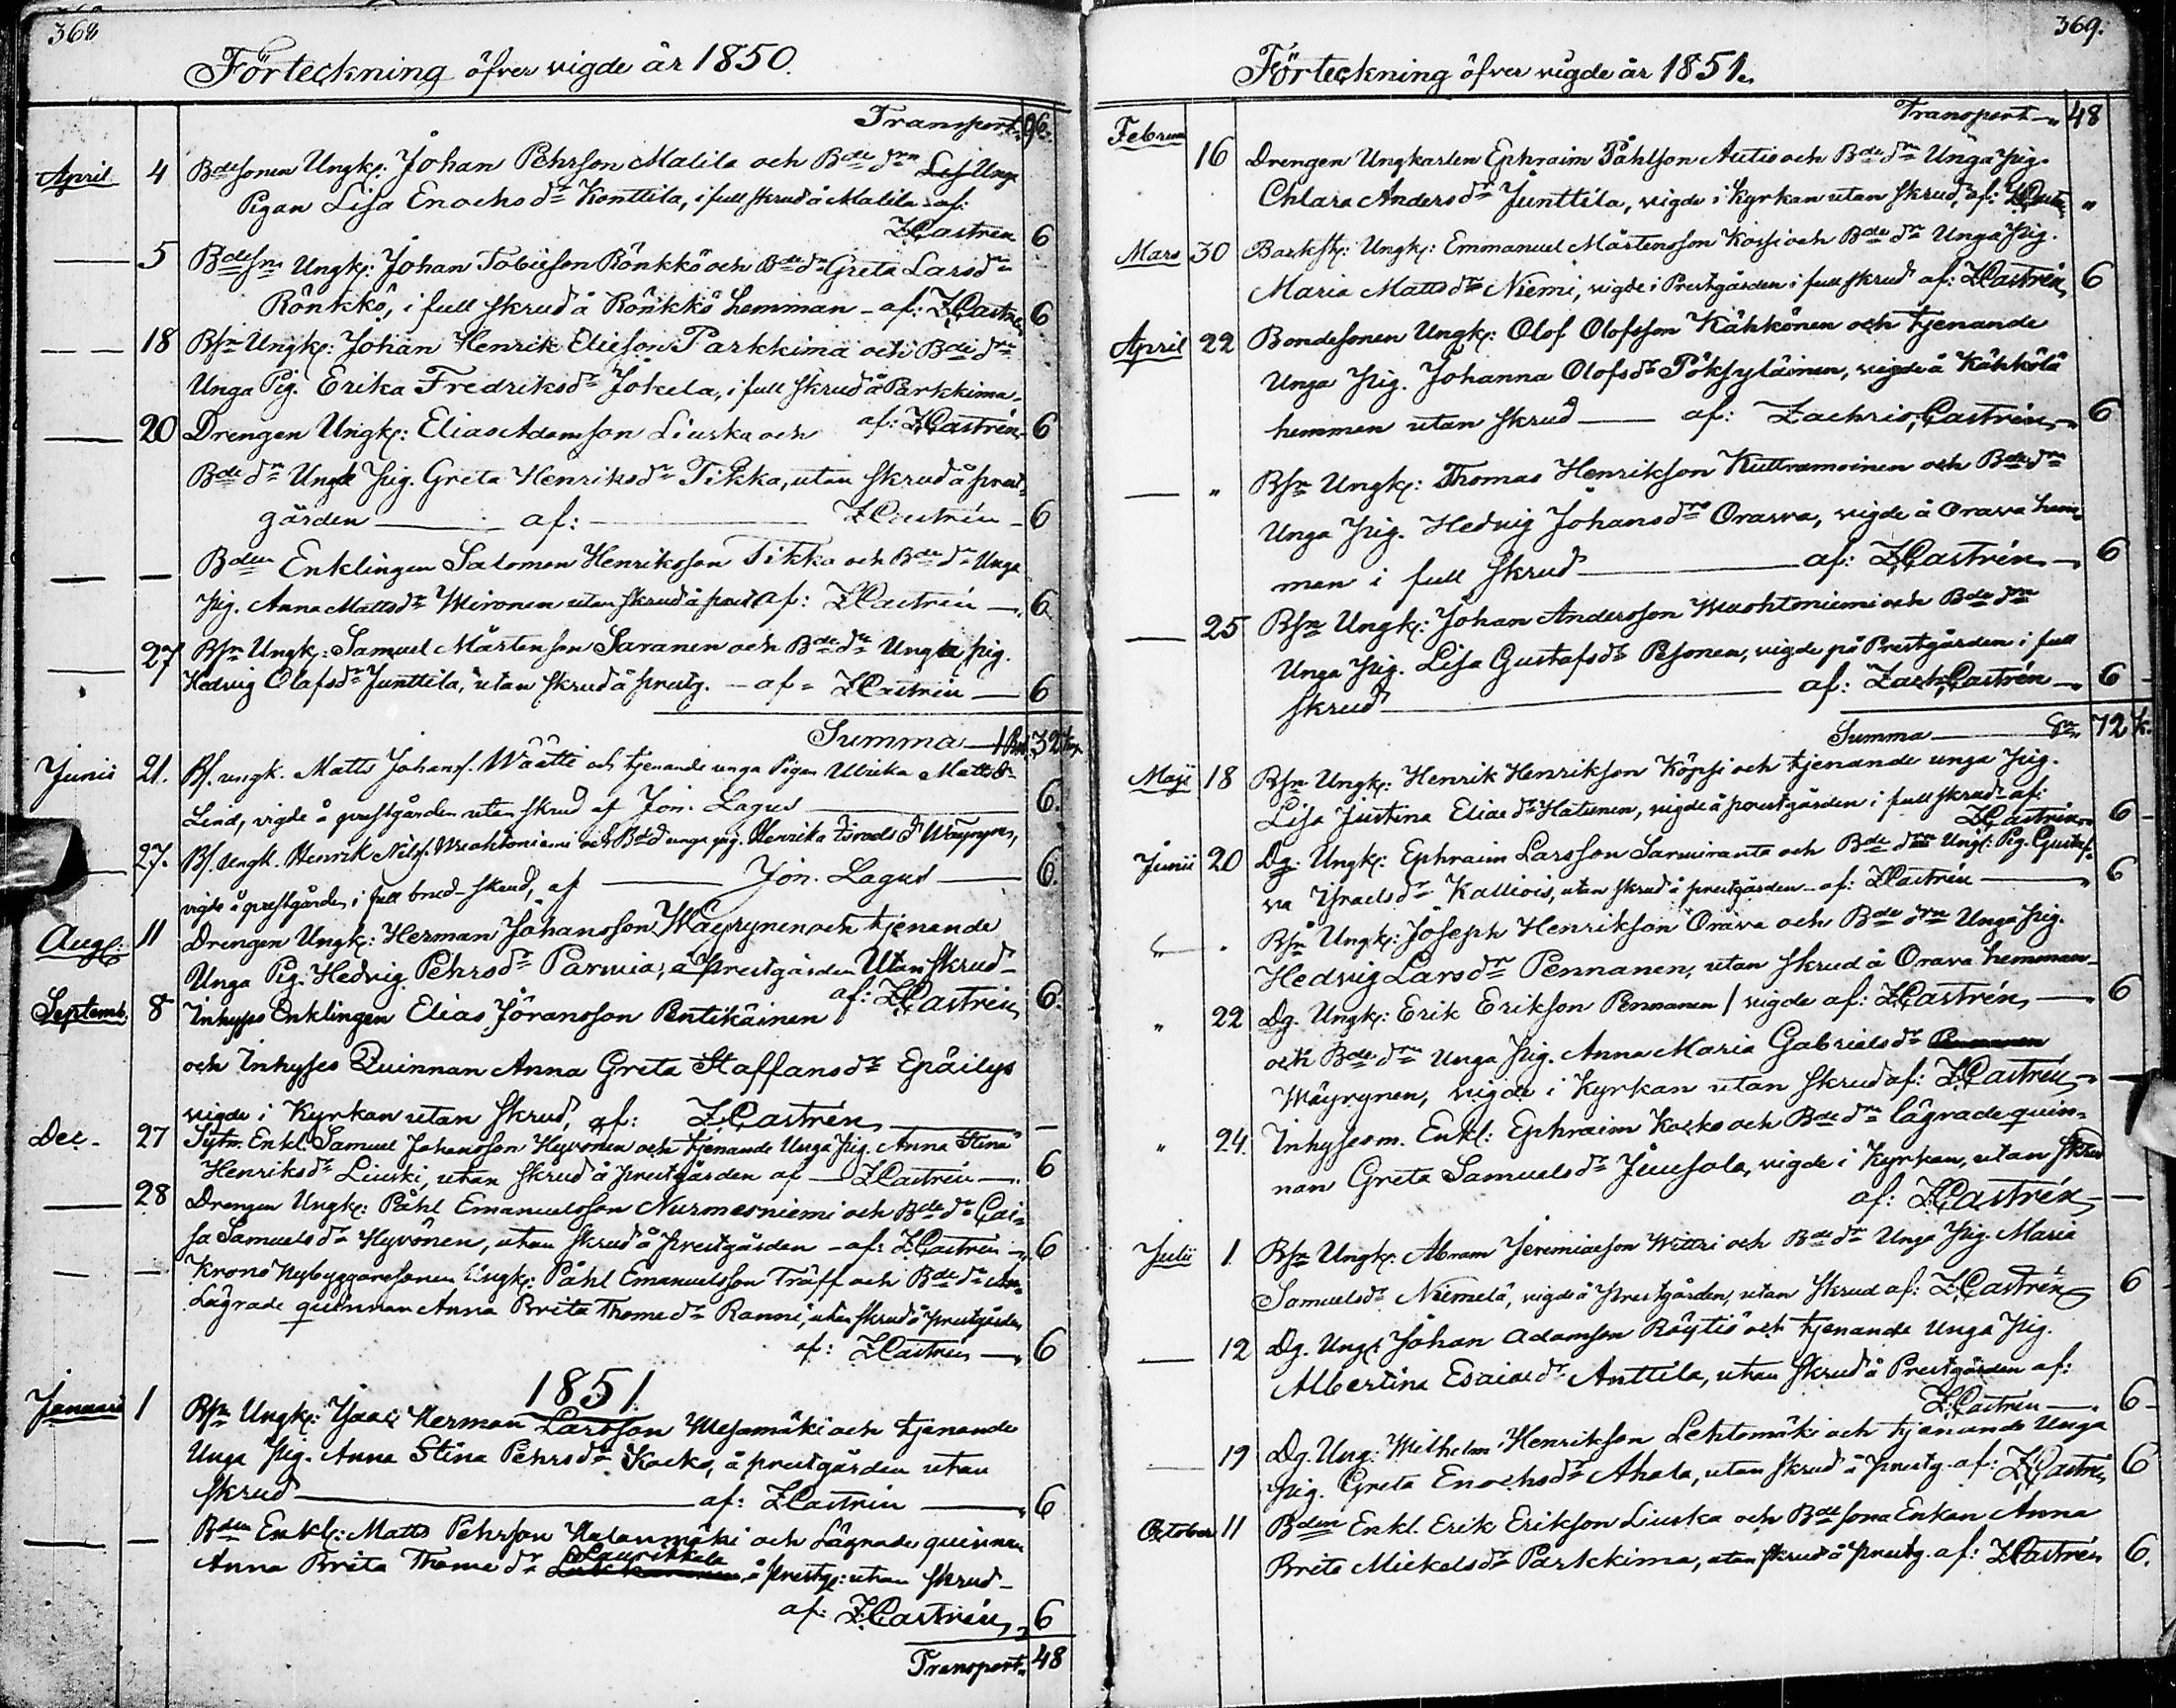 368
Förteckning öfver vigde år 1850.
Transport 96.
April 4 Bdesonen Ungk: Johan Pehrsson Malila och Bde dr Unga
Pigan Lisa Enochsdr Konttila, i full skrud å Malila af:
ZCastrén 6
5 Bdesn Ungk: Johan Tobiesson Rönkkö och Bde dr Greta Larsdr
Rönkkö, i full skrud å Rönkkö hemman - af: ZCastrén 6
18 Bsn Ungk: Johan Henrik Eliesson Parkkima och Bde dr
Unga Pig. Erika Fredriksdr Jokela, i full skrud å Parkkima
20 Drengen Ungk: Elias Adamsson Liuska och af: ZCastrén 6
Bde dr Unga Pig. Greta Henriksdr Tikka, utan skrud å prest
gården af: ZCastrén 6
Bden Enklingen Salomon Henriksson Tikka och Bde dr Unga
Pig. Anna Mattsdr Mironen utan skrud å prest af: ZCastrén 6
27 Bsn Ungk: Samuel Mårtensson Saranen och Bde dr Unga Pig.
Hedvig Olafsdr Junttila, utan skrud å prestg. - af ZCastrén 6
Summa 1 Rub. 32 kop
Junii 21. Bs. ungk. Matts Johans. Wäätti och tjenande unga Pigan Ulrika Mattsdr
Lind, vigde å prestgården utan skrud af Jon. Lagus 6.
27. Bs. Ungk. Henrik Nilss. Wuohtoniemi och Bdd unga pig. Henrika Israels dr Wäyrynen,
vigde å prestgården i full brud skrud, af Jon. Lagus 6.
Aug: 11 Drengen Ungk: Herman Johansson Wäyrynen och tjenande
Unga Pig. Hedvig Pehrsdr Parvia, å prestgården Utan skrud
af: ZCastrén 6.
Septemb. 8 Inhyses Enklingen Elias Jöransson Pentikäinen
och Inhyses Quinnan Anna Greta Staffansdr Epäilys
vigde i Kyrkan utan skrud, af: ZCastrén
Dec. 27 Sytn. Enkl: Samuel Johansson Hyvönen och tjenande Unga Pig. Anna Stina
Henriksdr Liuski, utan skrud å prestgården af ZCastrén 6
28 Drengen Ungk: Påhl Emanuelsson Nurmesniemi och Bde dr Cai-
sa Samuelsdr Hyvönen, utan skrud å prestgården - af: ZCastrén 6
Krono Nybyggaresonen Ungk: Påhl Emanuelsson Träff och Bde dr
Lägrade quinnan Anna Brita Thomedr Ranni, utan skrud å prestgården
af: ZCastrén 6
1851
Januari 1 Bsn Ungk: Isaac Herman Larsson Mesamäki och tjenande
Unga Pig. Anna Stina Pehrsdr Kocko, å prestgården utan
skrud af: ZCastrén 6
Bden Enkl: Matts Pehrsson Halanmäki och Lägrade quinnan
Anna Brita Thome dr Laurikkala å prestg: utan skrud
af: ZCastrén 6
Transport 48
369.
Förteckning öfver vigde år 1851.
Transport 48
Februa
16 Drengen Ungkarlen Ephraim Påhlson Autio och Bde dr Unga Pig.
Chlara Andersdr Junttila, vigde i Kyrkan utan skrud, af: ZCastrén "
Mars 30 Backst: Ungk: Emmanuel Mårtensson Kossi och Bde dr Unga Pig.
Maria Mattsdr Niemi, vigde i Prestgården i full skrud af: ZCastrén 6
April 22 Bondesonen Ungk: Olof Olofsson Kähkönen och tjenande
Unga Pig. Johanna Olofsdr Pöksyläinen, vigde å Kähkölä
hemman utan skrud af: Zachris Castrén 6
" Bsn Ungk: Thomas Henriksson Kuttramoinen och Bde dr
Unga Pig. Hedvig Johansdr Orawa, vigde å Orava hem-
man i full skrud af: ZCastrén 6
25 Bsn Ungk: Johan Andersson Wuohtoniemi och Bde dr
Unga Pig. Lisa Gustafsdr Pesonen, vigde på Prestgården i full
skrud af: ZachCastrén 6
Summa 72 K.
Maji 18 Bsn Ungk: Henrik Henriksson Köpsi och tjenande unga Pig.
Lisa Justina Eliedr Hatunen, vigde å prestgården i full skrud af:
ZCastrén 6
Junii 20 Dg. Ungk: Ephraim Larsson Sarviranta och Bde dr Ung: Pig. Gustaf-
va Israelsdr Kalliois, utan skrud å prestgården - af: ZCastrén 6
Bsn Ungk: Joseph Henriksson Orava och Bde dr Unga Pig.
Hedvig Larsdr Pennanen, utan skrud å Orava hemman
" 22 Dg. Ungk: Erik Eriksson Pennanen / vigde af: ZCastrén 6
och Bde dr Unga Pig. Anna Maria Gabrielsdr
Wäyrynen, vigde i Kyrkan utan skrud af: ZCastrén
" 24. Inhysesm. Enkl: Ephraim Kocko och Bde dr lägrade quin-
nan Greta Samuelsdr Juusola, vigde i Kyrkan, utan skrud
af: ZCastrén
Julii 1 Bsn Ungk: Abram Jeremiaeson Wittri och Bde dr Unga Pig. Maria
Samuelsdr Niemelä, vigde å Prestgården, utan skrud af: ZCastrén 6
12 Dg. Ung: Johan Adamsson Röytiö och tjenande Unga Pig.
Albertina Esaiædr Anttila, utan skrud å Prestgården af:
ZCastrén 6
19 Dg. Ung: Wilhelm Henriksson Lehtomäki och tjenande Unga
Pig. Greta Enochsdr Ahola, utan skrud å prestg. af: ZCastrén 6
October 11 Bden Enkl. Erik Eriksson Liuska och Bde sona Enkan Anna
Brita Mickelsdr Parkkima, utan skrud å prestg. af: ZCastrén 6.